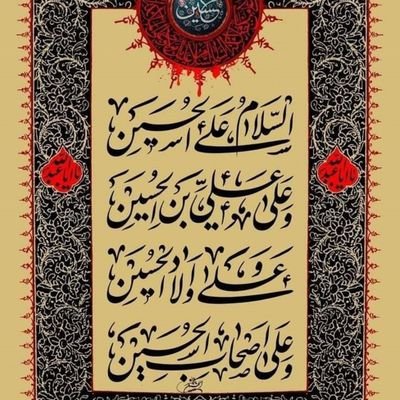 حسین
السلام علی الحسین
و علی علی بن الحسین
و علی اولاد الحسین
و علی اصحاب الحسین
یا اباعبدالله
یا اباعبدالله